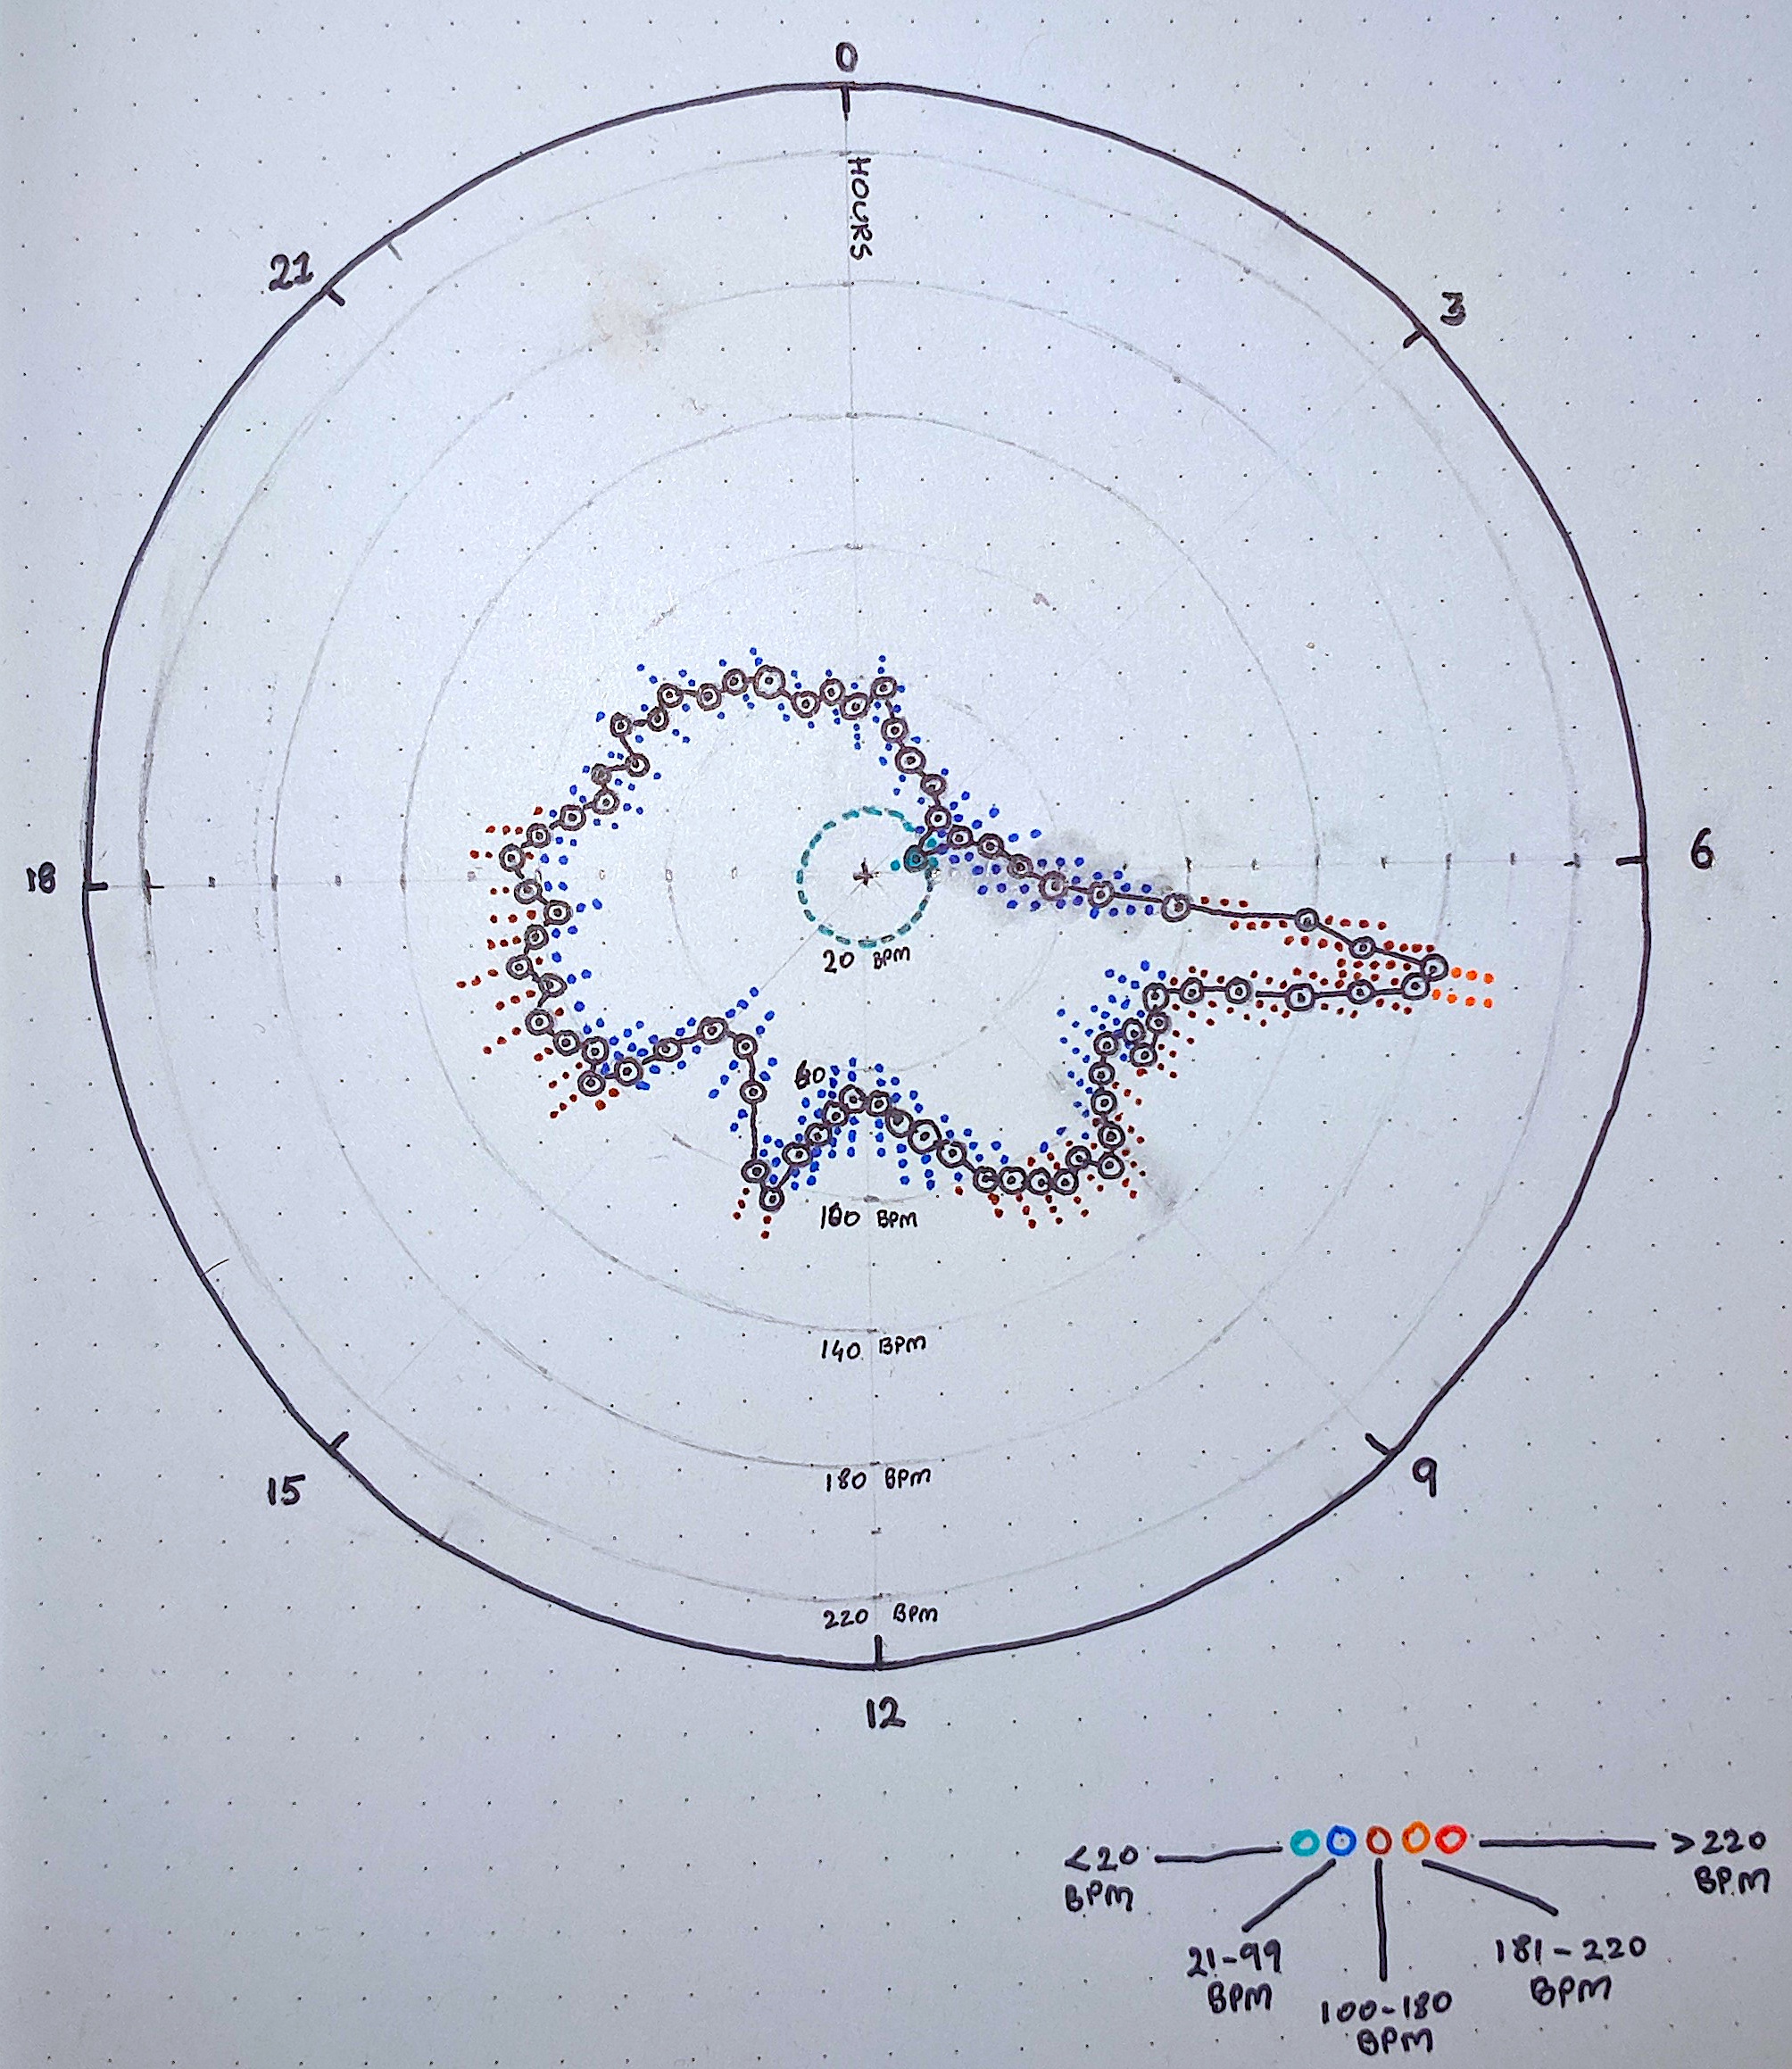 0
HOURS
21
3
18
6
20 BPM
60
100 BPM
140 BPM
180 BPM
220 BPM
15
9
12
<20
BPM
21-99
BPM
100-180
BPM
181-220
BPM
>220
BPM